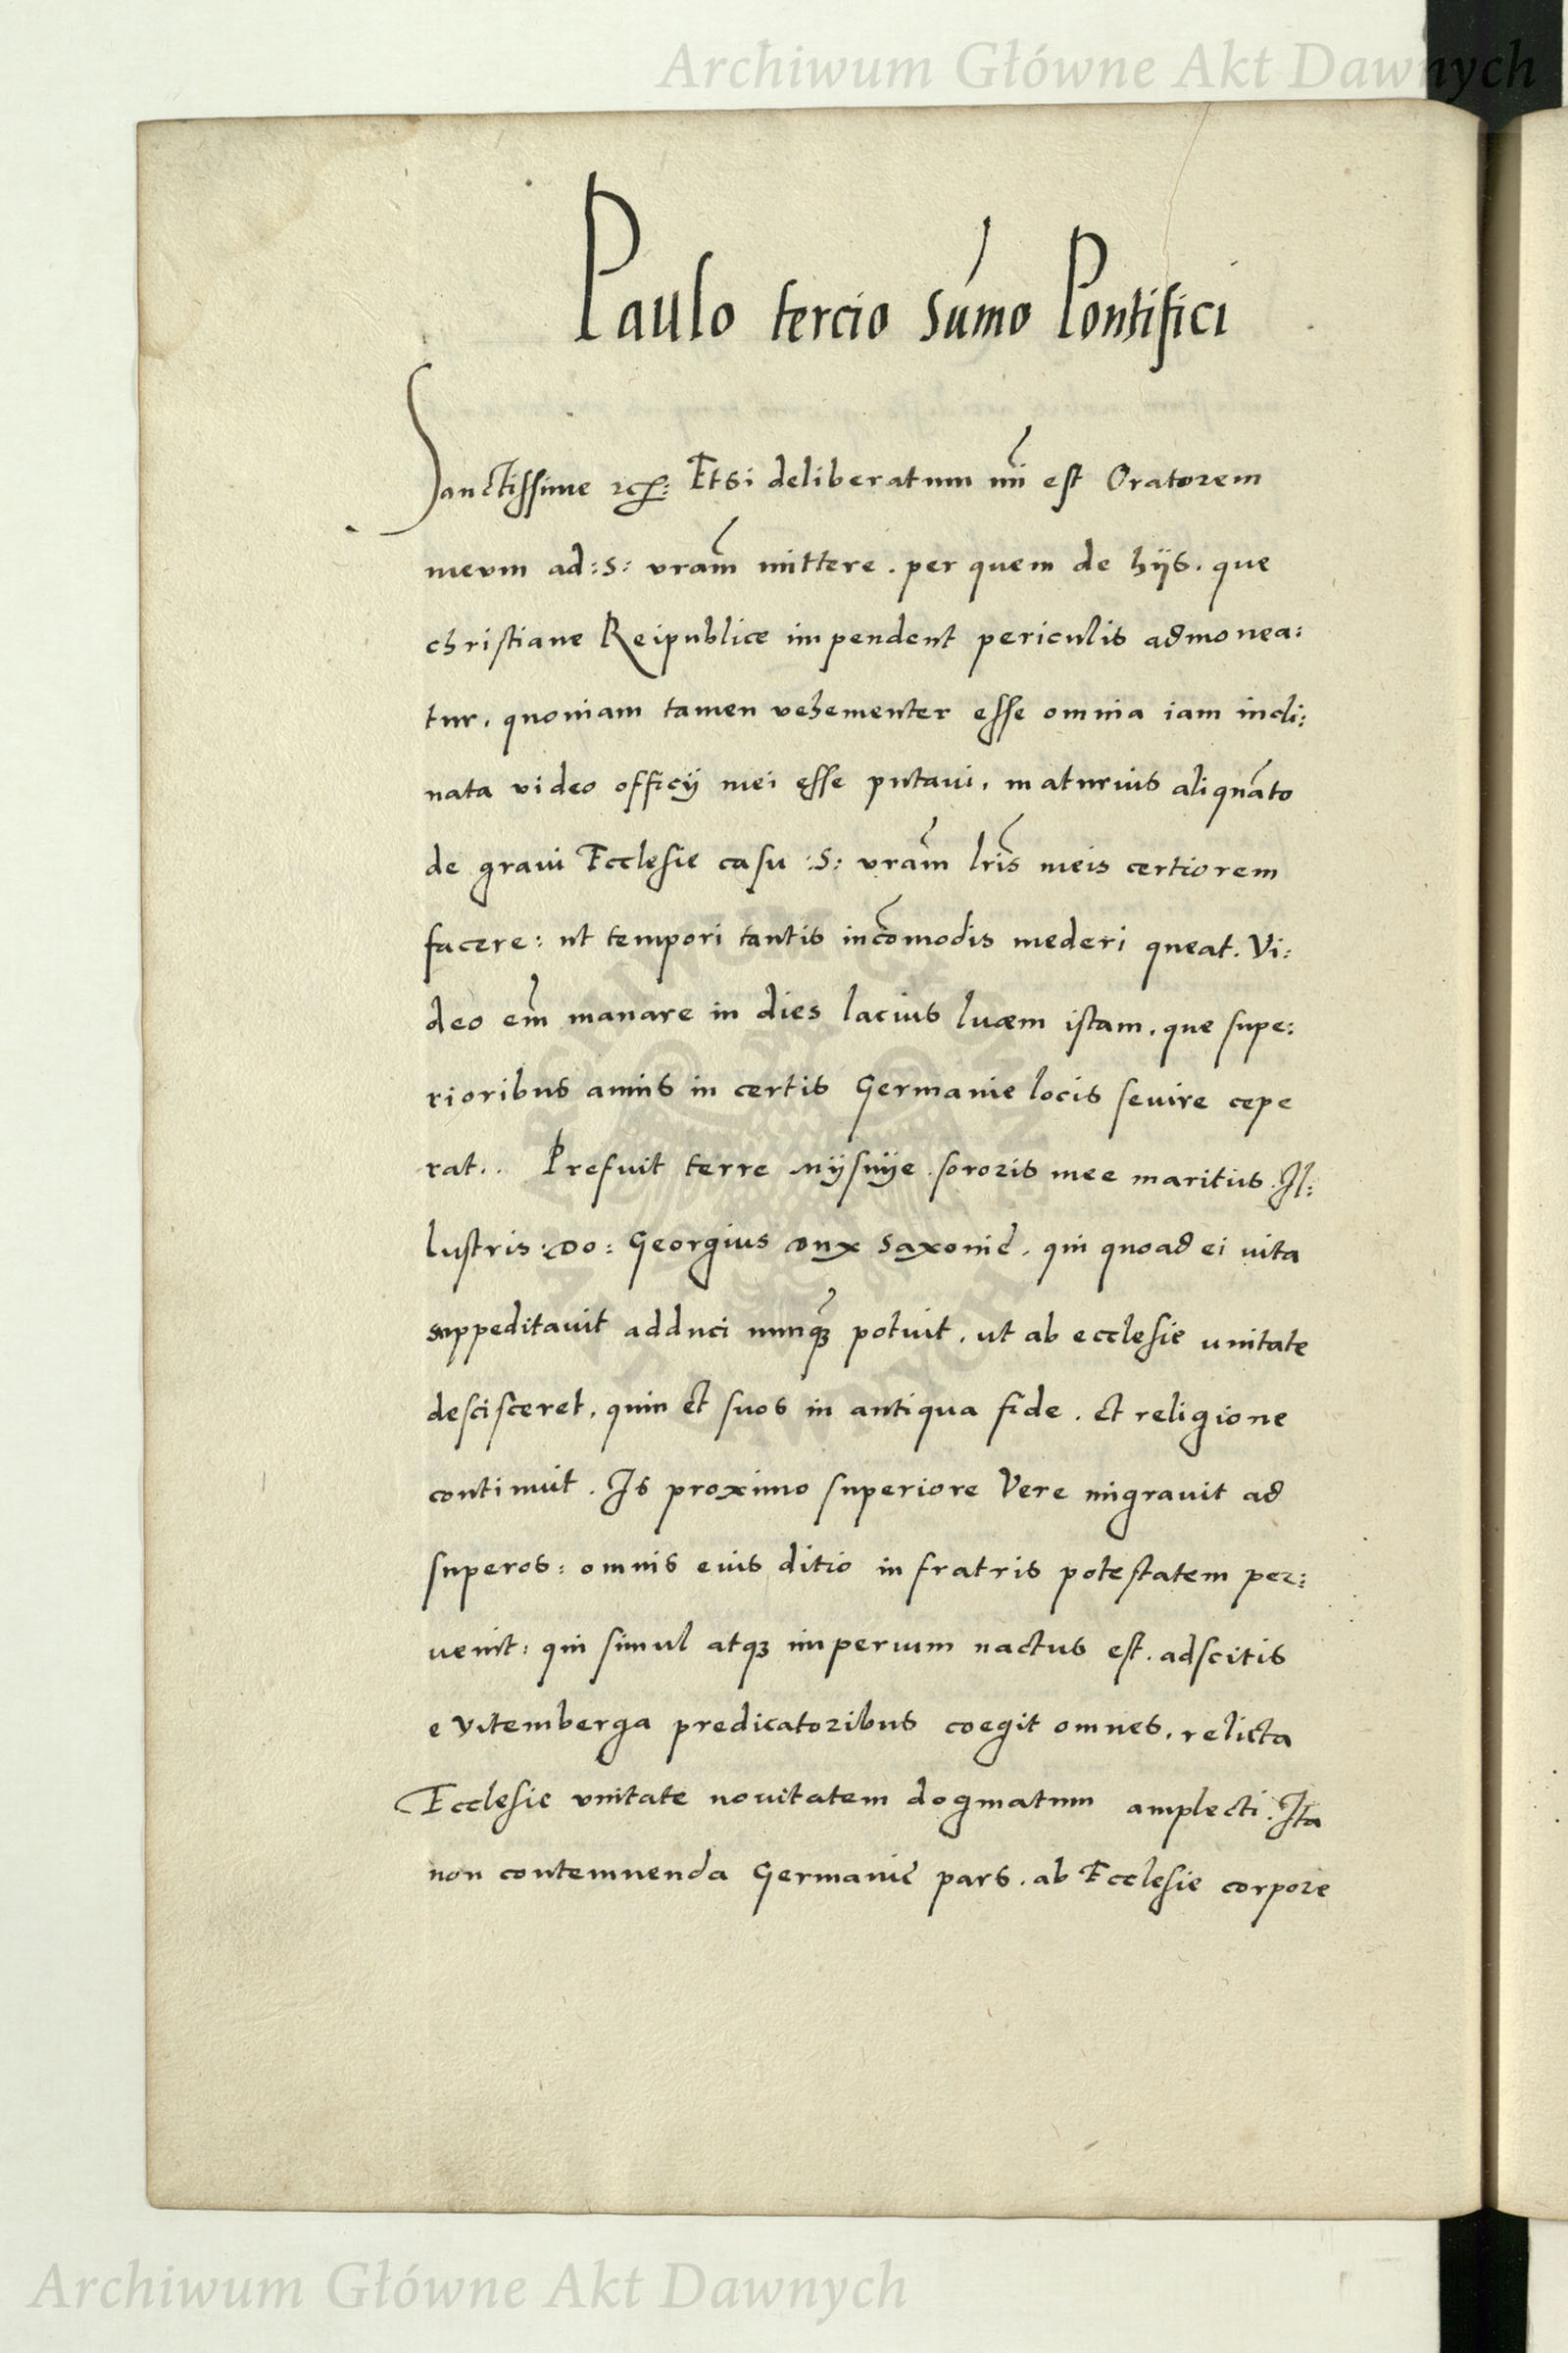 Archiwum Główne Akt Dawnych
Paulo tercio Sum̄o Pontifici
Sanctissime etc: Etsi deliberatum mi̅ est Oratorem
meum ad :S: vram̅ mittere . per quem de hijs . que
christiane Reipublice impendent periculis admonea:
tur . quoniam tamen vehementer esse omnia iam incli:
nata video officij mei esse putaui . maturius aliqua̅to
de graui Ecclesie casu :S: vram̅ lri̅s meis certiorem
facere : ut tempori tantis inco̅modis mederi queat . Vi:
deo em̅ manare in dies lacius luem istam . que supe:
rioribus annis in certis Germanie locis seuire cepe
rat . . Prefuit terre Mijsnije sororis mee maritus . Il:
lustris : Do : Georgius Dux Saxonie . qui quoad ei vita
suppeditauit adduci nunqꝫ potuit . ut ab ecclesie unitate
descisceret . quin et suos in antiqua fide . et religione
continuit . Is proximo superiore Vere migrauit ad
superos : omnis eius ditio in fratris potestatem per:
uenit : qui simul atqꝫ imperium nactus est . adscitis
e Vitemberga predicatoribus coegit omnes . relicta
Ecclesie vnitate nouitatem dogmatum amplecti . Ita
non contemnenda Germanie pars . ab Ecclesie corpore
Archiwum Główne Akt Dawnych